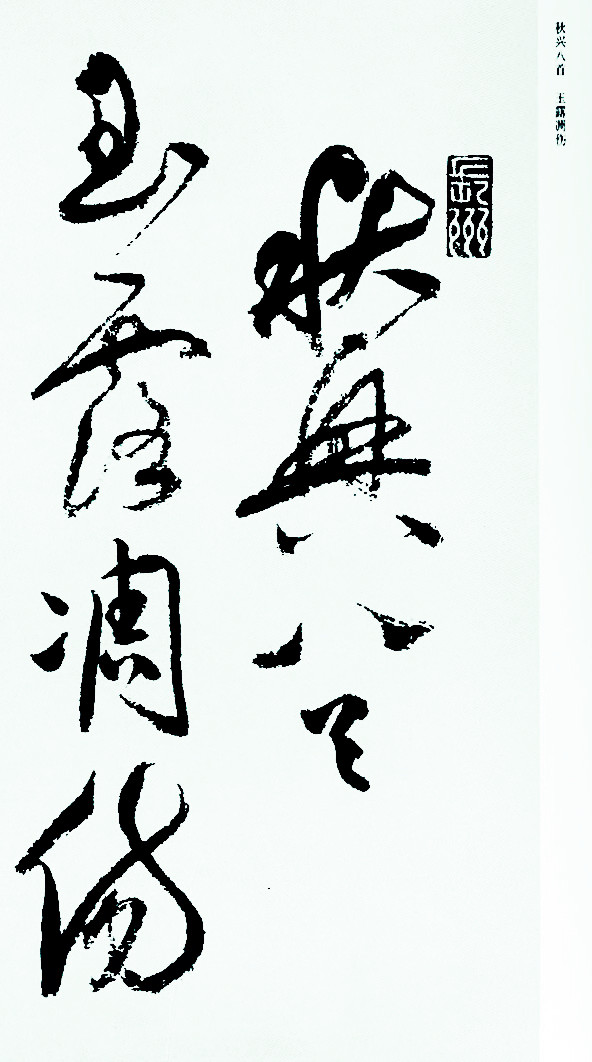 秋兴八首 玉露凋伤
秋興八首
玉露凋傷